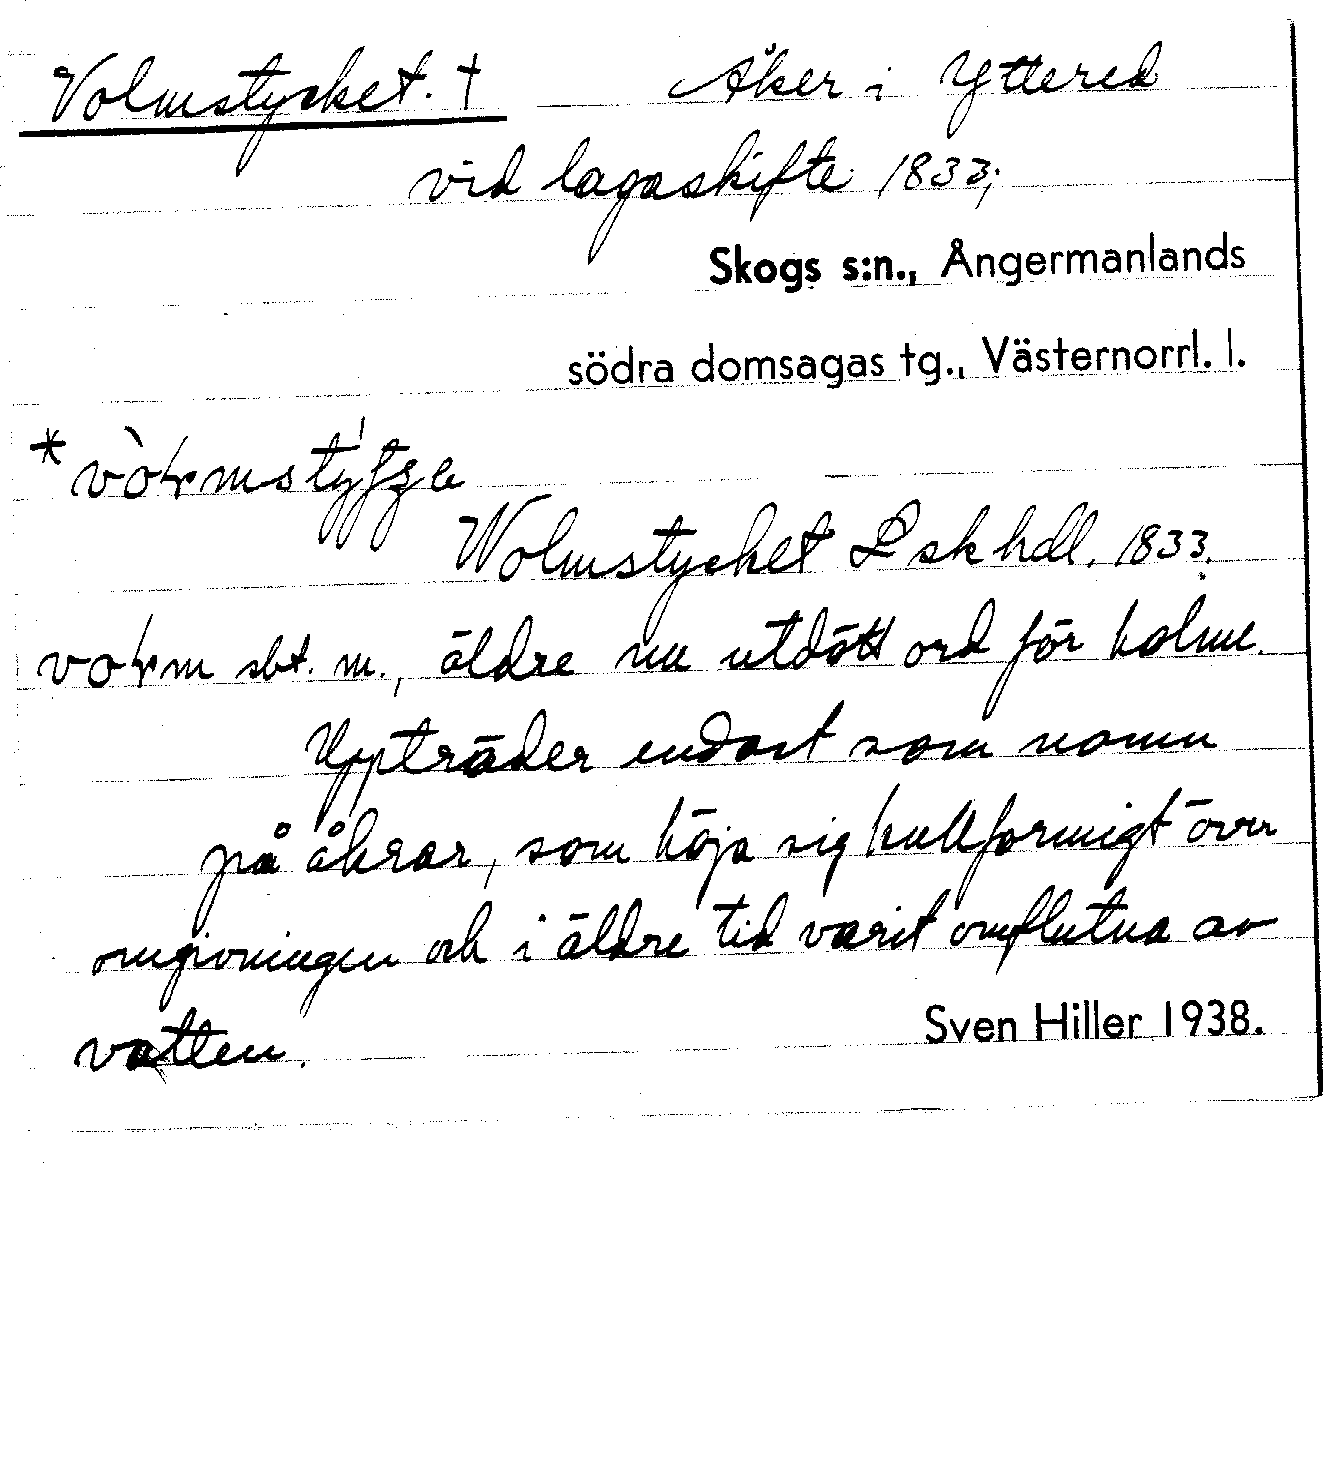 Volmstycket. † Åker i Yttered
vid lagaskifte 1833;
Skogs s:n., Ångermanlands
södra domsagas tg., Västernorrl. l.
Wolmstycket Lskhdl. 1833.
sbt. m., äldre nu utdött ord för holme.
Uppträder endast som namn
på åkrar, som höja sig kullformigt över
omgivningen och i äldre tid varit omflutna av
vatten.
Sven Hiller 1938.